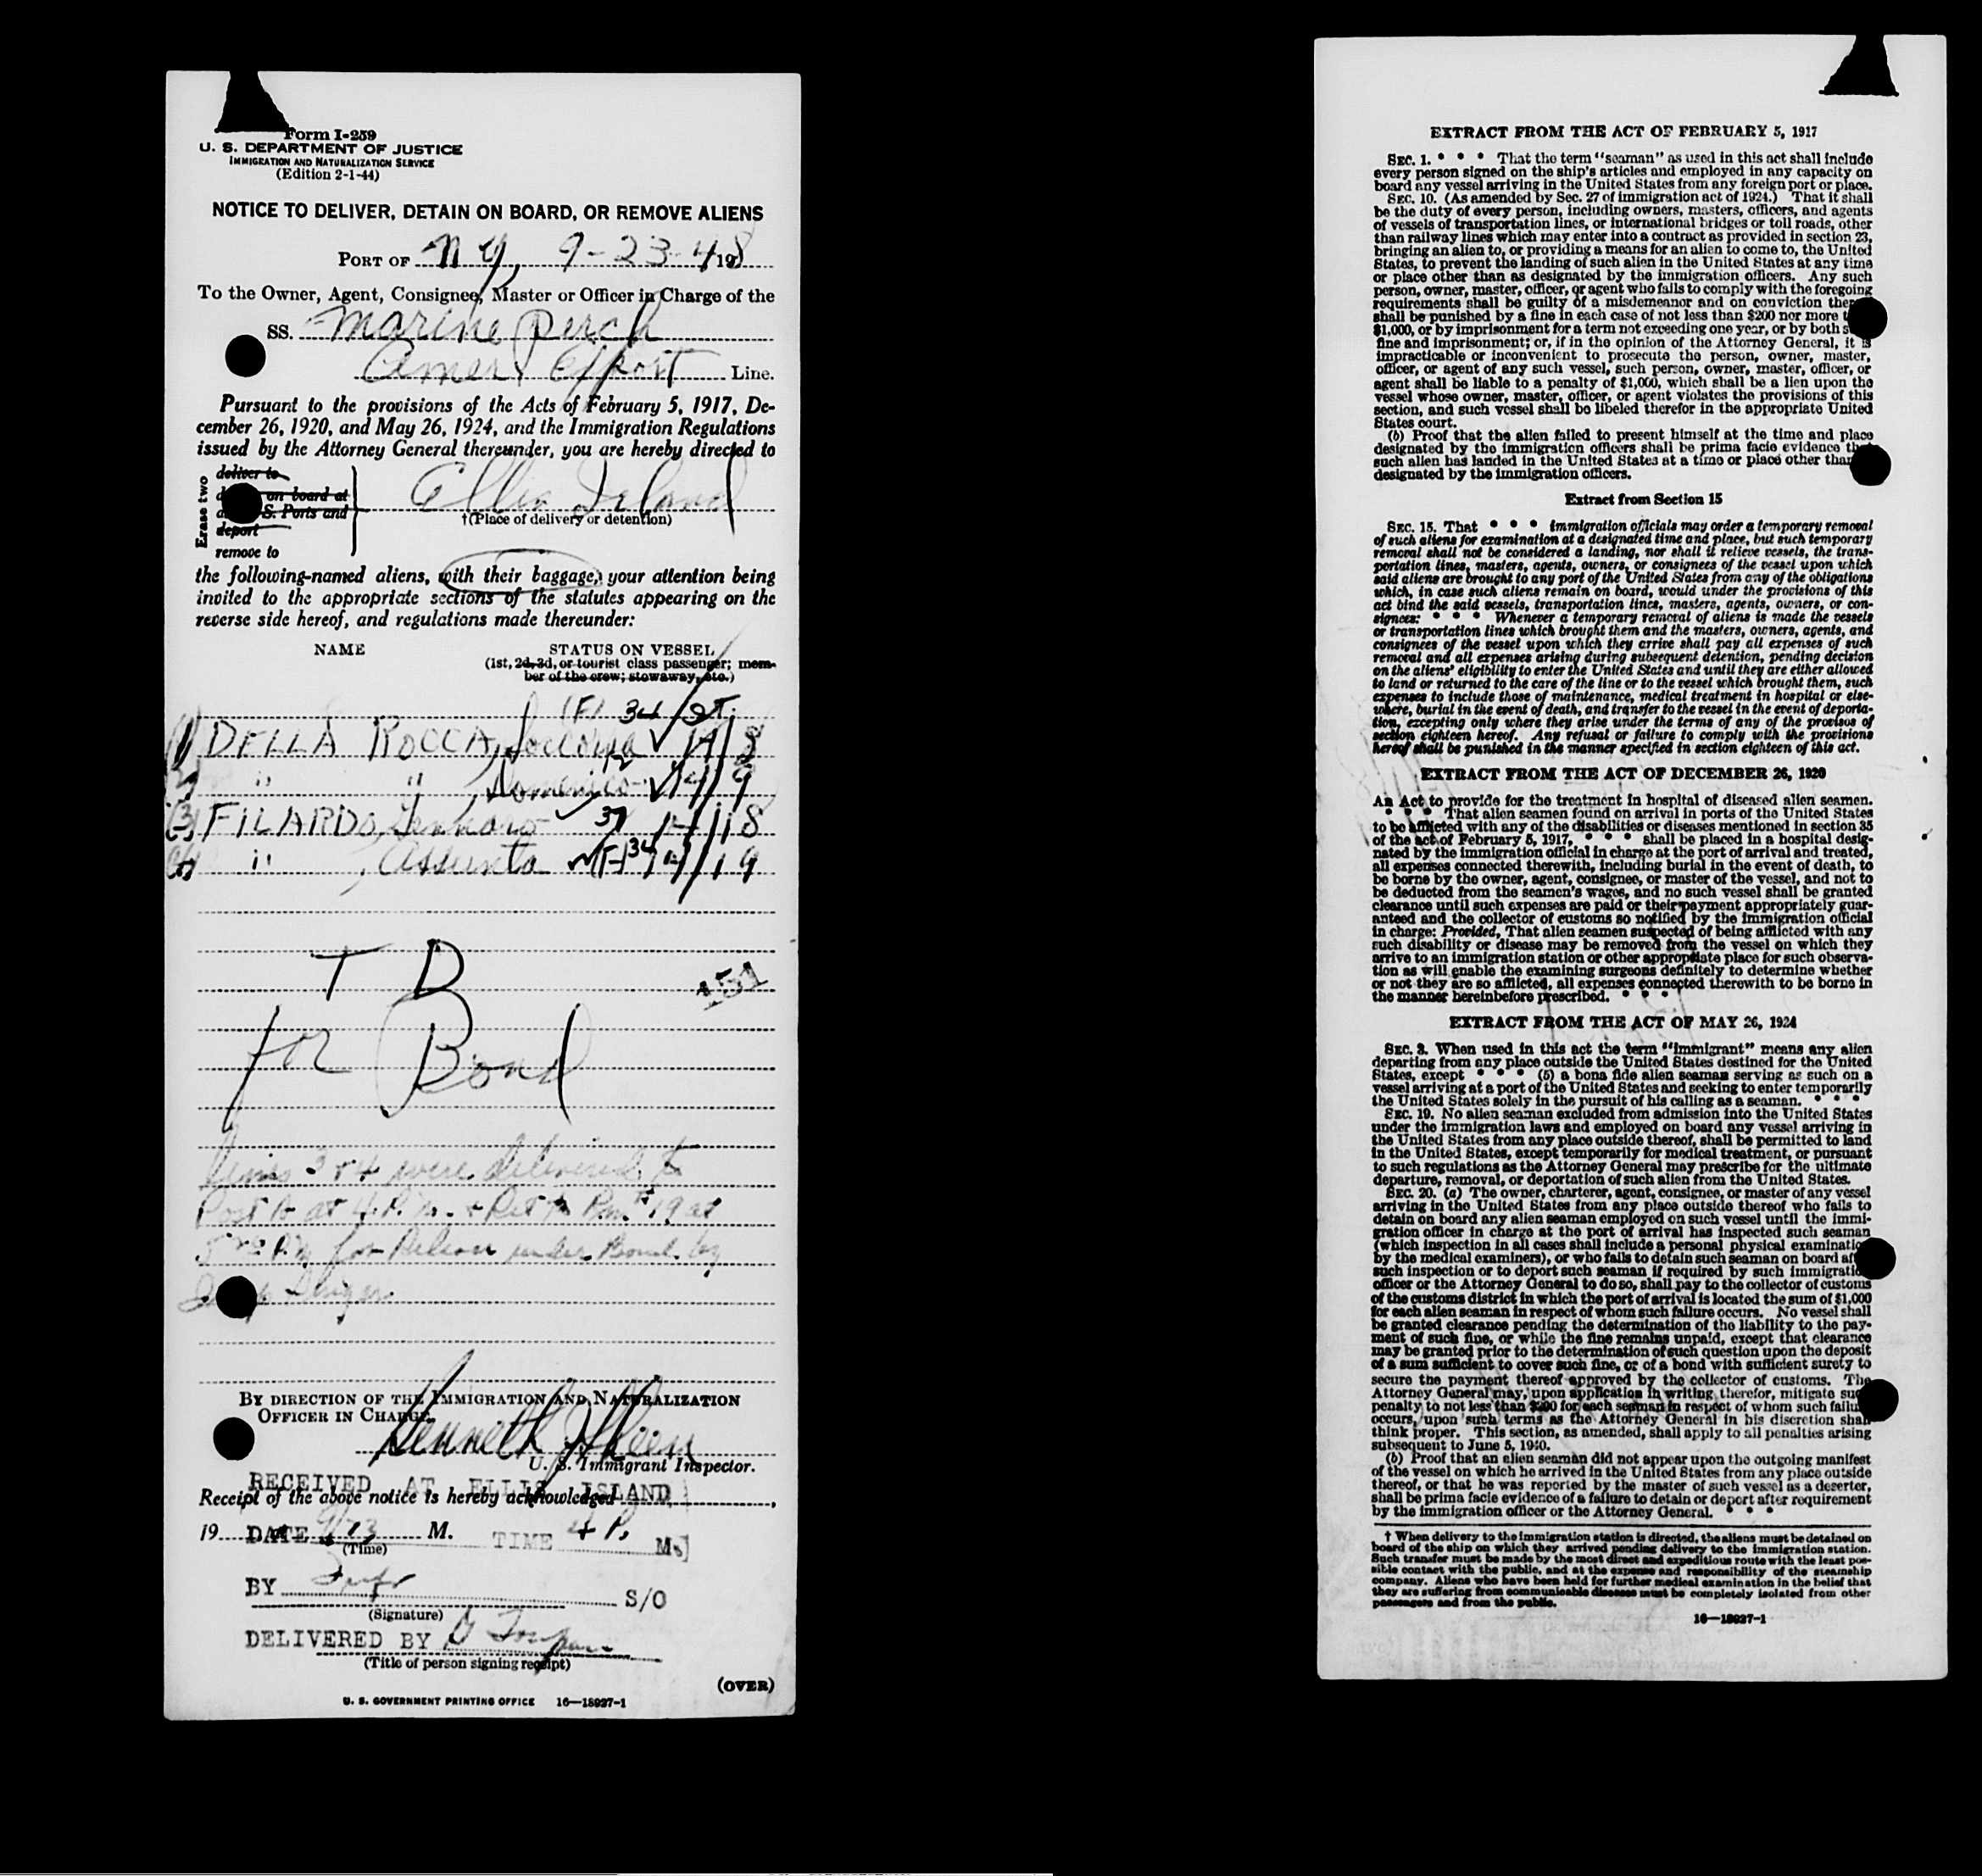 Form I-259
U. S. DEPARTMENT OF JUSTICE
IMMIGRATION AND NATURALIZATION SERVICE
(Edition 2-1-44)
NOTICE TO DELIVER, DETAIN ON BOARD, OR REMOVE ALIENS
PORT OF N Y, 9-23-48 19
To the Owner, Agent, Consignee, Master or Officer in Charge of the
SS. Marine Perch
Amer Export Line.
Pursuant to the provisions of the Acts of February 5, 1917, De-
cember 26, 1920, and May 26, 1924, and the Immigration Regulations
issued by the Attorney General thereunder, you are hereby directed to
Erase two
deliver to
on board at
S. Ports and
deport
remove to
Ellis Island
†(Place of delivery or detention)
the following-named aliens, with their baggage, your attention being
invited to the appropriate sections of the statutes appearing on the
reverse side hereof, and regulations made thereunder:
NAME STATUS ON VESSEL
(1st, 2d, 3d, or tourist class passenger; mem-
ber of the crew; stowaway, etc.)
(F) 34
(1) DELLA ROCCA, 14/8
" " , Domenico 12 14/9
(3) FILARDO, Gennaro 37 14/18
" , Assunta (F) 34 14/19
T D
151
for Bond
3 & 4 were delivered to
at 4 P.M. + Ret to Rm # 19 at
for Release under Bond by
BY DIRECTION OF THE IMMIGRATION AND NATURALIZATION
OFFICER IN CHARGE.
Kenneth
U. S. Immigrant Inspector.
RECEIVED AT ELLIS ISLAND
Receipt of the above notice is hereby acknowledged
19 DATE 9/23 M. TIME 4 P. M.
(Time)
BY S/O
(Signature)
DELIVERED BY
(Title of person signing receipt)
(OVER)
U. S. GOVERNMENT PRINTING OFFICE 16—18927-1
EXTRACT FROM THE ACT OF FEBRUARY 5, 1917
SEC. 1. * * * That the term "seaman" as used in this act shall include
every person signed on the ship's articles and employed in any capacity on
board any vessel arriving in the United States from any foreign port or place.
SEC. 10. (As amended by Sec. 27 of immigration act of 1924.) That it shall
be the duty of every person, including owners, masters, officers, and agents
of vessels of transportation lines, or international bridges or toll roads, other
than railway lines which may enter into a contract as provided in section 23,
bringing an alien to, or providing a means for an alien to come to, the United
States, to prevent the landing of such alien in the United States at any time
or place other than as designated by the immigration officers. Any such
person, owner, master, officer, or agent who fails to comply with the foregoing
requirements shall be guilty of a misdemeanor and on conviction
shall be punished by a fine in each case of not less than $200 nor more
$1,000, or by imprisonment for a term not exceeding one year, or by both
fine and imprisonment; or, if in the opinion of the Attorney General, it is
impracticable or inconvenient to prosecute the person, owner, master,
officer, or agent of any such vessel, such person, owner, master, officer, or
agent shall be liable to a penalty of $1,000, which shall be a lien upon the
vessel whose owner, master, officer, or agent violates the provisions of this
section, and such vessel shall be libeled therefor in the appropriate United
States court.
(b) Proof that the alien failed to present himself at the time and place
designated by the immigration officers shall be prima facie evidence that
such alien has landed in the United States at a time or place other than
designated by the immigration officers.
Extract from Section 15
SEC. 15. That * * * immigration officials may order a temporary removal
of such aliens for examination at a designated time and place, but such temporary
removal shall not be considered a landing, nor shall it relieve vessels, the trans-
portation lines, masters, agents, owners, or consignees of the vessel upon which
said aliens are brought to any port of the United States from any of the obligations
which, in case such aliens remain on board, would under the provisions of this
act bind the said vessels, transportation lines, masters, agents, owners, or con-
signees: * * * Whenever a temporary removal of aliens is made the vessels
or transportation lines which brought them and the masters, owners, agents, and
consignees of the vessel upon which they arrive shall pay all expenses of such
removal and all expenses arising during subsequent detention, pending decision
on the aliens' eligibility to enter the United States and until they are either allowed
to land or returned to the care of the line or to the vessel which brought them, such
expenses to include those of maintenance, medical treatment in hospital or else-
where, burial in the event of death, and transfer to the vessel in the event of deporta-
tion, excepting only where they arise under the terms of any of the provisos of
section eighteen hereof. Any refusal or failure to comply with the provisions
hereof shall be punished in the manner specified in section eighteen of this act.
EXTRACT FROM THE ACT OF DECEMBER 26, 1920
An Act to provide for the treatment in hospital of diseased alien seamen.
* * * That alien seamen found on arrival in ports of the United States
to be afflicted with any of the disabilities or diseases mentioned in section 35
of the act of February 5, 1917, * * * shall be placed in a hospital desig-
nated by the immigration official in charge at the port of arrival and treated,
all expenses connected therewith, including burial in the event of death, to
be borne by the owner, agent, consignee, or master of the vessel, and not to
be deducted from the seamen's wages, and no such vessel shall be granted
clearance until such expenses are paid or their payment appropriately guar-
anteed and the collector of customs so notified by the immigration official
in charge: Provided, That alien seamen suspected of being afflicted with any
such disability or disease may be removed from the vessel on which they
arrive to an immigration station or other appropriate place for such observa-
tion as will enable the examining surgeons definitely to determine whether
or not they are so afflicted, all expenses connected therewith to be borne in
the manner hereinbefore prescribed. * * *
EXTRACT FROM THE ACT OF MAY 26, 1924
SEC. 3. When used in this act the term "immigrant" means any alien
departing from any place outside the United States destined for the United
States, except * * * (5) a bona fide alien seaman serving as such on a
vessel arriving at a port of the United States and seeking to enter temporarily
the United States solely in the pursuit of his calling as a seaman. * * *
SEC. 19. No alien seaman excluded from admission into the United States
under the immigration laws and employed on board any vessel arriving in
the United States from any place outside thereof, shall be permitted to land
in the United States, except temporarily for medical treatment, or pursuant
to such regulations as the Attorney General may prescribe for the ultimate
departure, removal, or deportation of such alien from the United States.
SEC. 20. (a) The owner, charterer, agent, consignee, or master of any vessel
arriving in the United States from any place outside thereof who fails to
detain on board any alien seaman employed on such vessel until the immi-
gration officer in charge at the port of arrival has inspected such seaman
(which inspection in all cases shall include a personal physical examination
by the medical examiners), or who fails to detain such seaman on board
such inspection or to deport such seaman if required by such immigration
officer or the Attorney General to do so, shall pay to the collector of customs
of the customs district in which the port of arrival is located the sum of $1,000
for each alien seaman in respect of whom such failure occurs. No vessel shall
be granted clearance pending the determination of the liability to the pay-
ment of such fine, or while the fine remains unpaid, except that clearance
may be granted prior to the determination of such question upon the deposit
of a sum sufficient to cover such fine, or of a bond with sufficient surety to
secure the payment thereof approved by the collector of customs. The
Attorney General may, upon application in writing therefor, mitigate such
penalty to not less than $200 for each seaman in respect of whom such failure
occurs, upon such terms as the Attorney General in his discretion shall
think proper. This section, as amended, shall apply to all penalties arising
subsequent to June 5, 1940.
(b) Proof that an alien seaman did not appear upon the outgoing manifest
of the vessel on which he arrived in the United States from any place outside
thereof, or that he was reported by the master of such vessel as a deserter,
shall be prima facie evidence of a failure to detain or deport after requirement
by the immigration officer or the Attorney General. * * *
† When delivery to the immigration station is directed, the aliens must be detained on
board of the ship on which they arrived pending delivery to the immigration station.
Such transfer must be made by the most direct and expeditious route with the least pos-
sible contact with the public, and at the expense and responsibility of the steamship
company. Aliens who have been held for further medical examination in the belief that
they are suffering from communicable diseases must be completely isolated from other
passengers and from the public.
16—18927-1